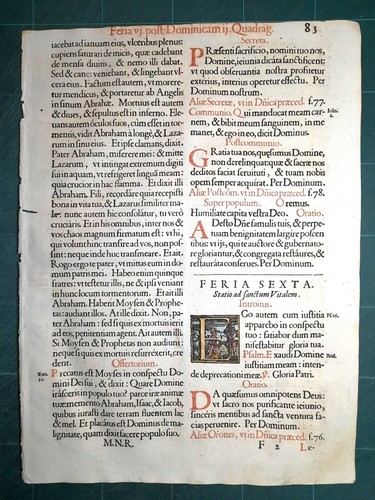 Feria vj. post Dominicam ij. Quadrag. 83
iacebat ad ianuam eius, vlceribus plenus:
cupiens saturari de micis, quæ cadebant
de mensa diuitis, & nemo illi dabat.
Sed & canes veniebant, & lingebant vl-
cera eius. Factum est autem, vt morere-
tur mendicus, & portaretur ab Angelis
in sinum Abrahæ. Mortuus est autem
& diues, & sepultus est in inferno. Ele-
uans autem oculos suos, cùm esset in tor-
mentis, vidit Abraham à longè, & Laza-
rum in sinu eius. Et ipse clamans, dixit:
Pater Abraham, miserere mei: & mitte
Lazarum, vt intingat extremum digiti
sui in aquam, vt refrigeret linguã meam:
quia crucior in hac flamma. Et dixit illi
Abraham. Fili, recordare quia recepisti
bona in vita tua, & Lazarus similiter ma-
la: nunc autem hic consolatur, tu verò
cruciaris. Et in his omnibus, inter nos &
vos chaos magnum firmatum est: vt hi,
qui volunt hinc transire ad vos, non pos-
sint: neque inde huc transmeare. Et ait.
Rogo ergo te pater, vt mittas eum in do-
mum patris mei. Habeo enim quinque
fratres: vt testetur illis, ne & ipsi veniant
in hunc locum tormentorum. Et ait illi
Abraham. Habent Moysen & Prophe-
tas: audiant illos. At ille dixit. Non, pa-
ter Abraham: sed si quis ex mortuis ierit
ad eos, pœnitentiam agent. Ait autem illi.
Si Moysen & Prophetas non audiunt:
neque si quis ex mortuis resurrexerit, cre-
dent. Offertorium.
Precatus est Moyses in conspectu Do-
mini Dei sui, & dixit: Quare Domine
irasceris in populo tuo? parce iræ animæ
tuæ: memento Abraham, Isaac, & Iacob,
quibus iurasti dare terram fluentem lac
& mel. Et placatus est Dominus de ma-
lignitate, quam dixit facere populo suo.
M.N.R.
Secreta.
Præsenti sacrificio, nomini tuo nos,
Domine, ieiunia dicata sanctificent:
vt quod obseruantia nostra profitetur
exterius, interius operetur effectu. Per
Dominum nostrum.
Aliæ Secretæ, vt in Dñica præced. f.77.
Communio. Qui manducat meam car-
nem, & bibit meum sanguinem, in me
manet, & ego in eo, dicit Dominus.
Postcommunio.
Gratia tua nos, quæsumus Domine,
non derelinquat: quæ & sacræ nos
deditos faciat seruituti, & tuam nobis
opem semper acquirat. Per Dominum.
Aliæ Postcõm. vt in Dñica præced. f.78.
Super populum. Oremus.
Humiliate capita vestra Deo. Oratio.
Adesto Dñe famulis tuis, & perpe-
tuam benignitatem largire poscen-
tibus: vt ijs, qui te auctore & gubernato-
re gloriantur, & congregata restaures, &
restaurata conserues. Per Dominum.
FERIA SEXTA.
Statio ad sanctum Vitalem.
Introitus.
Ego autem cum iustitia
apparebo in conspectu
tuo: satiabor dum ma-
nifestabitur gloria tua.
Psalm. Exaudi Domine
iustitiam meam: inten-
de deprecationi meæ. ℣. Gloria Patri.
Oratio.
Da quæsumus omnipotens Deus:
vt sacro nos purificante ieiunio,
sinceris mentibus ad sancta ventura
facias peruenire. Per Dominum.
Aliæ Orõnes, vt in Dñica præced. f.76.
F 2 Le-